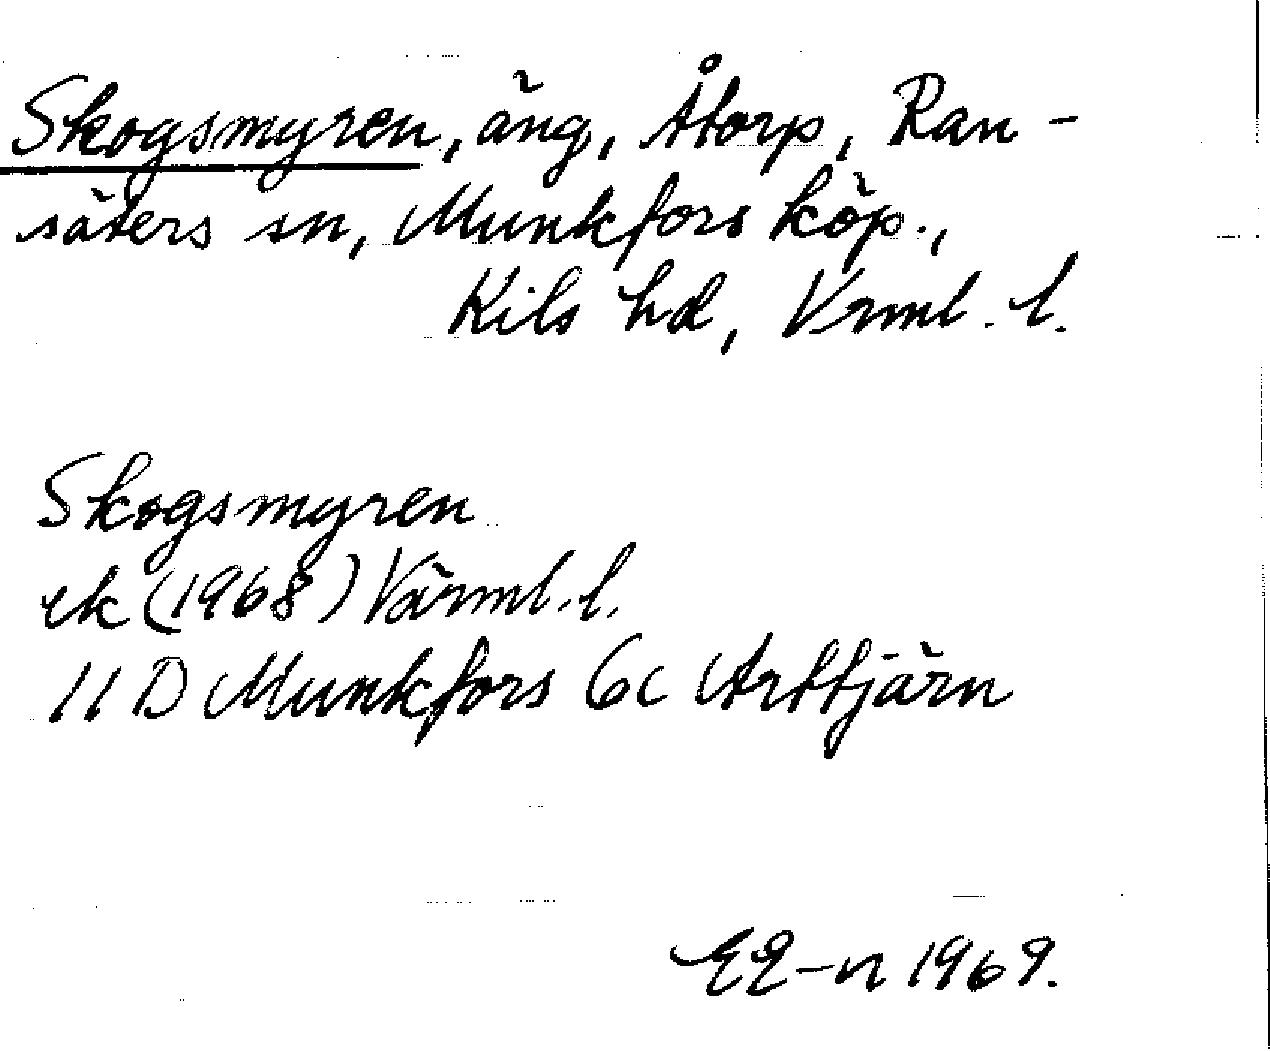 Skogsmyren, äng, Åtorp, Ran-
säters sn, Munkfors köp.,
Kils hd, Vrml. l.
Skogsmyren
ek (1968) Värml. l.
11 D Munkfors 6c Arttjärn
EE-n 1969.